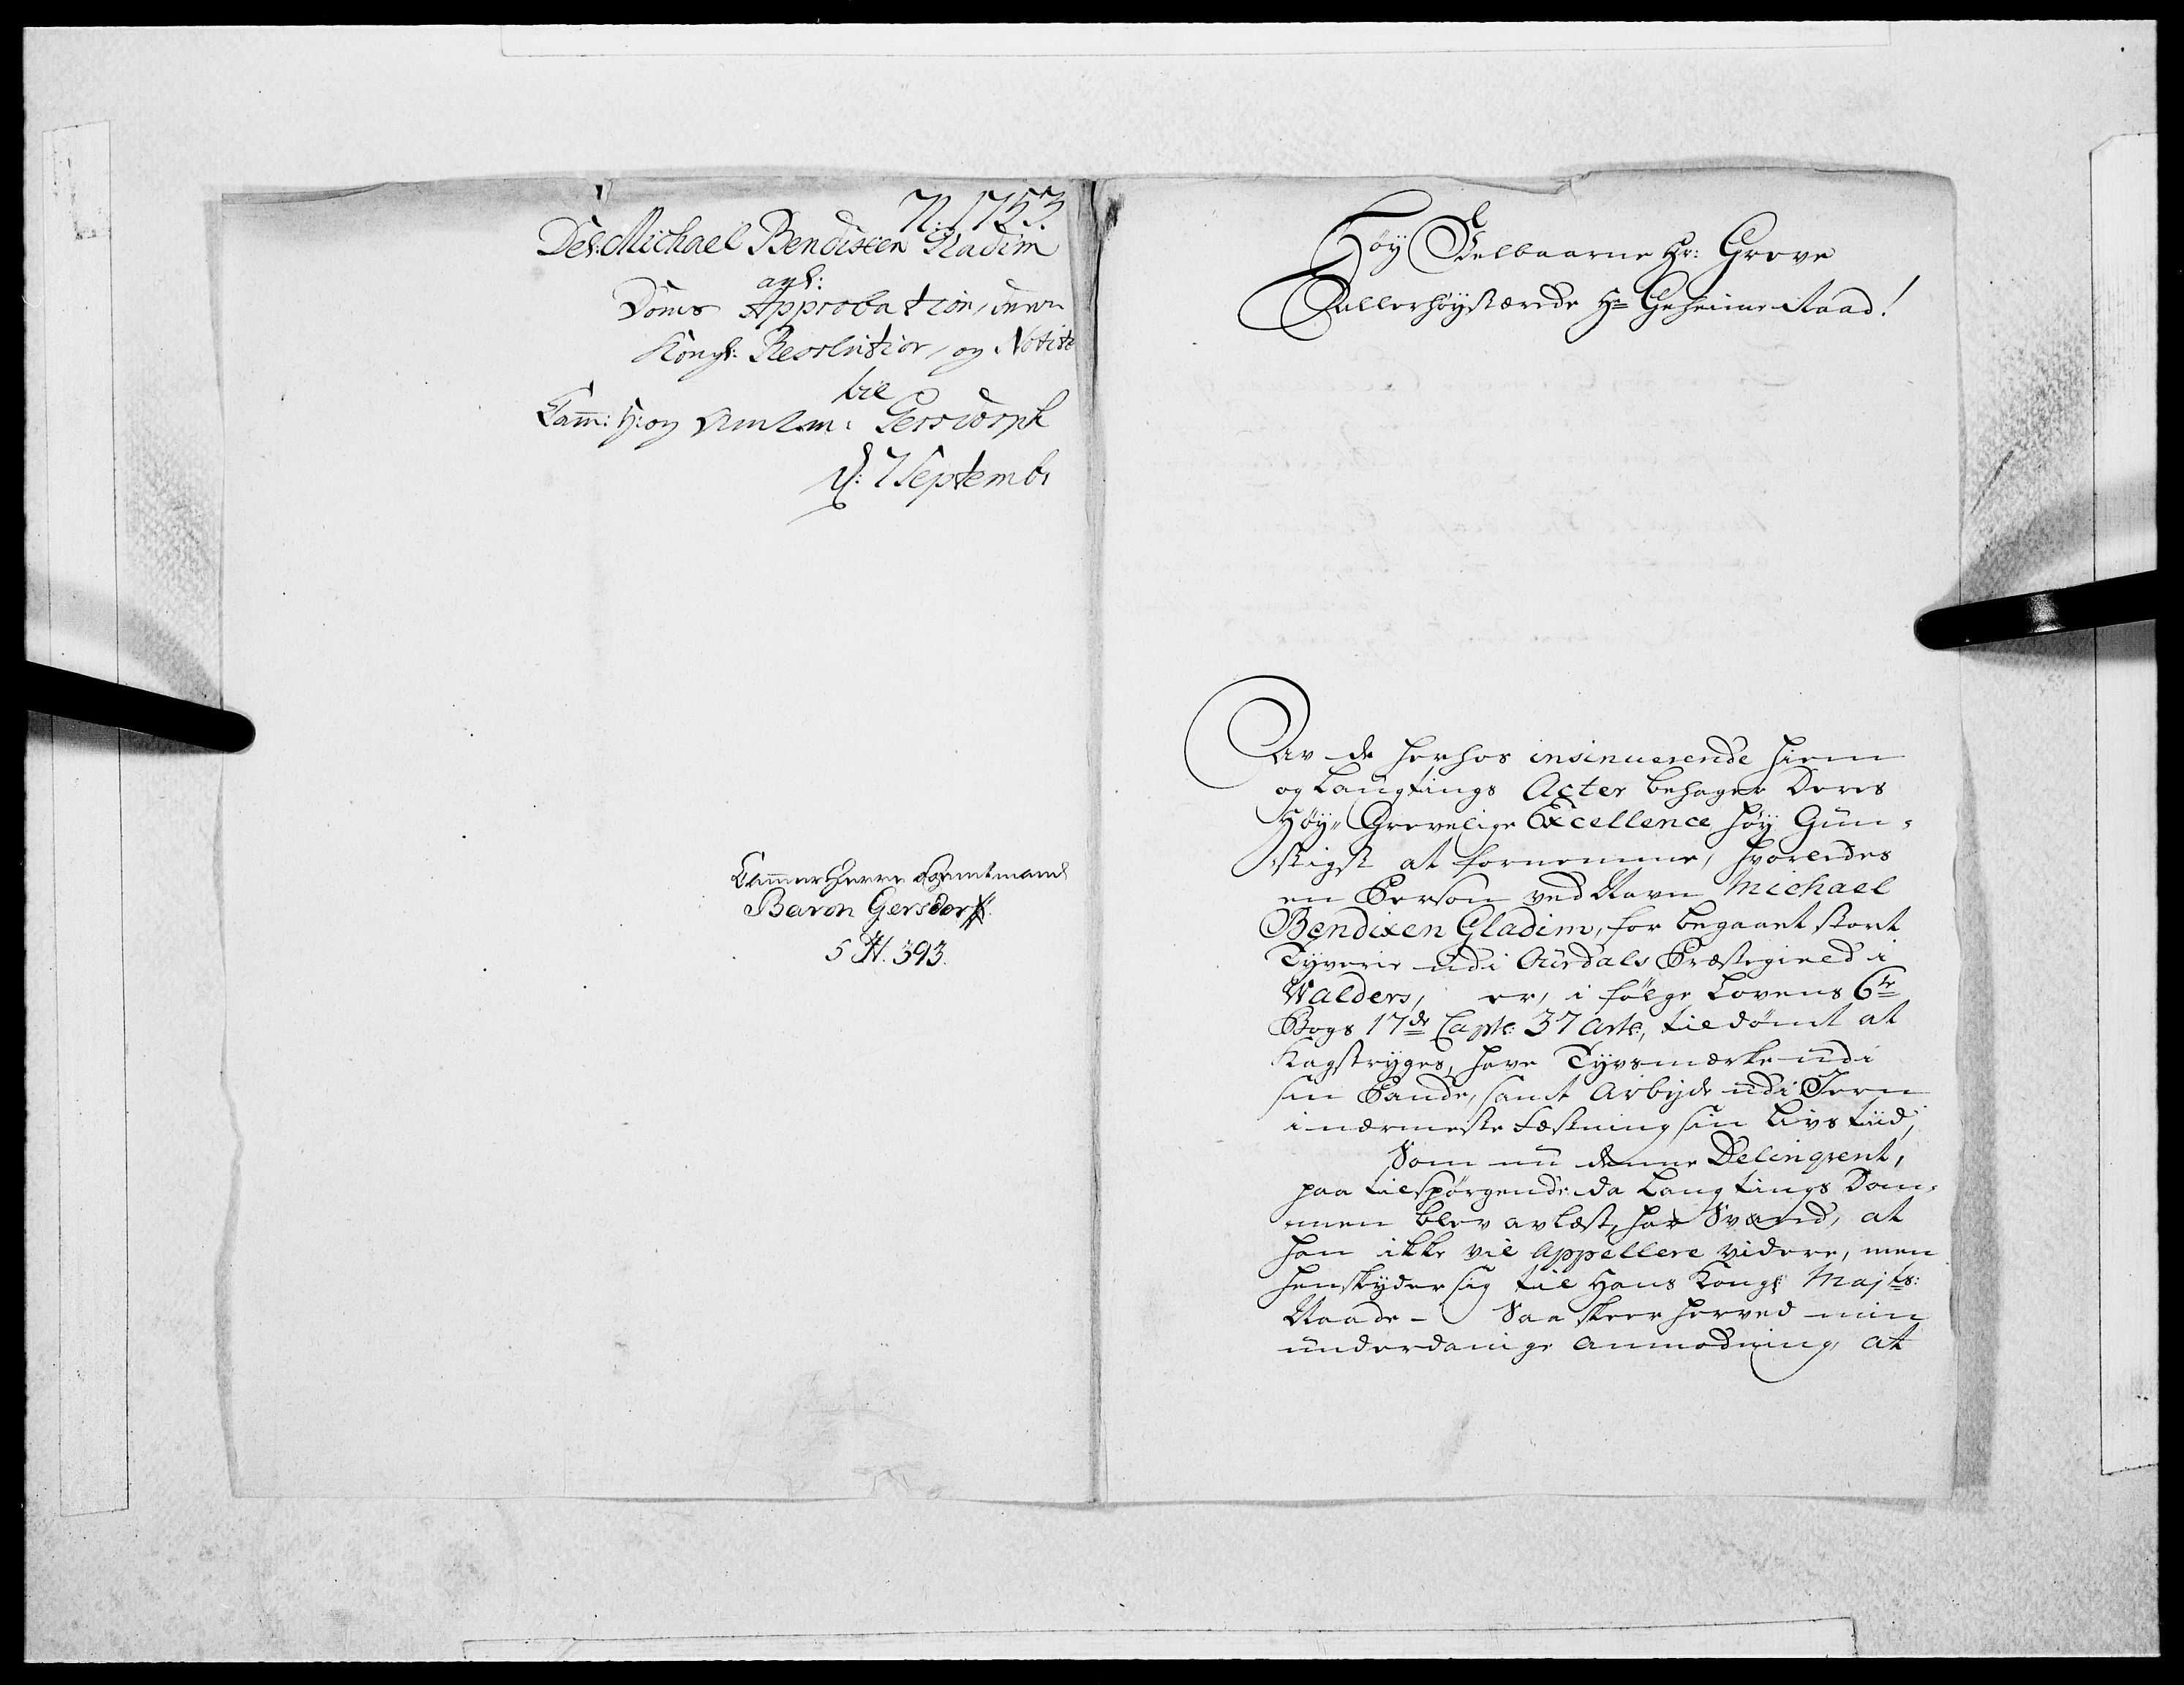 N. 1753.
Del: Michael Bendixen Gladim
angl:
Doms Approbation,
Kongl: Resolution, og Notice
til
Cam: H: og Amtm: Gersdorph
d: 7 Septembr
Cammer Herre og Amtmand
Baron Gersdorff.
5 H. 393.
Høy Velbaarne Hr: Greve
Allerhøystærede Hr Geheime Raad!
Av de herhos insinuerende Hiem
og Laugtings Acter behager Deres
Høy- Grevelige Excellence høy Gün-
stigst at fornemme, hvorledes
en Person ved Navn Michael
Bendixen Gladim, for begaaet stort
Tyverie udi Aurdals Præstegield i
Walders, er, i følge Lovens 6te
Bogs 17de Capts: 37 Artl:, tildømt at
Kagstryges, have Tyvsmærke udi
sin Pande, samt Arbeyde udi Jern
i nærmeste Fæstning sin Livs tiid;
Som nu denne Delinqvent,
paa tilspørgende da Laugtings Dom-
men blev avlæst, har Svared, at
han ikke vil Appellere videre, men
henskyder sig til Hans Kongl: Majts:
Naade - Saa skeer herved min
underdanige Anmodning, at